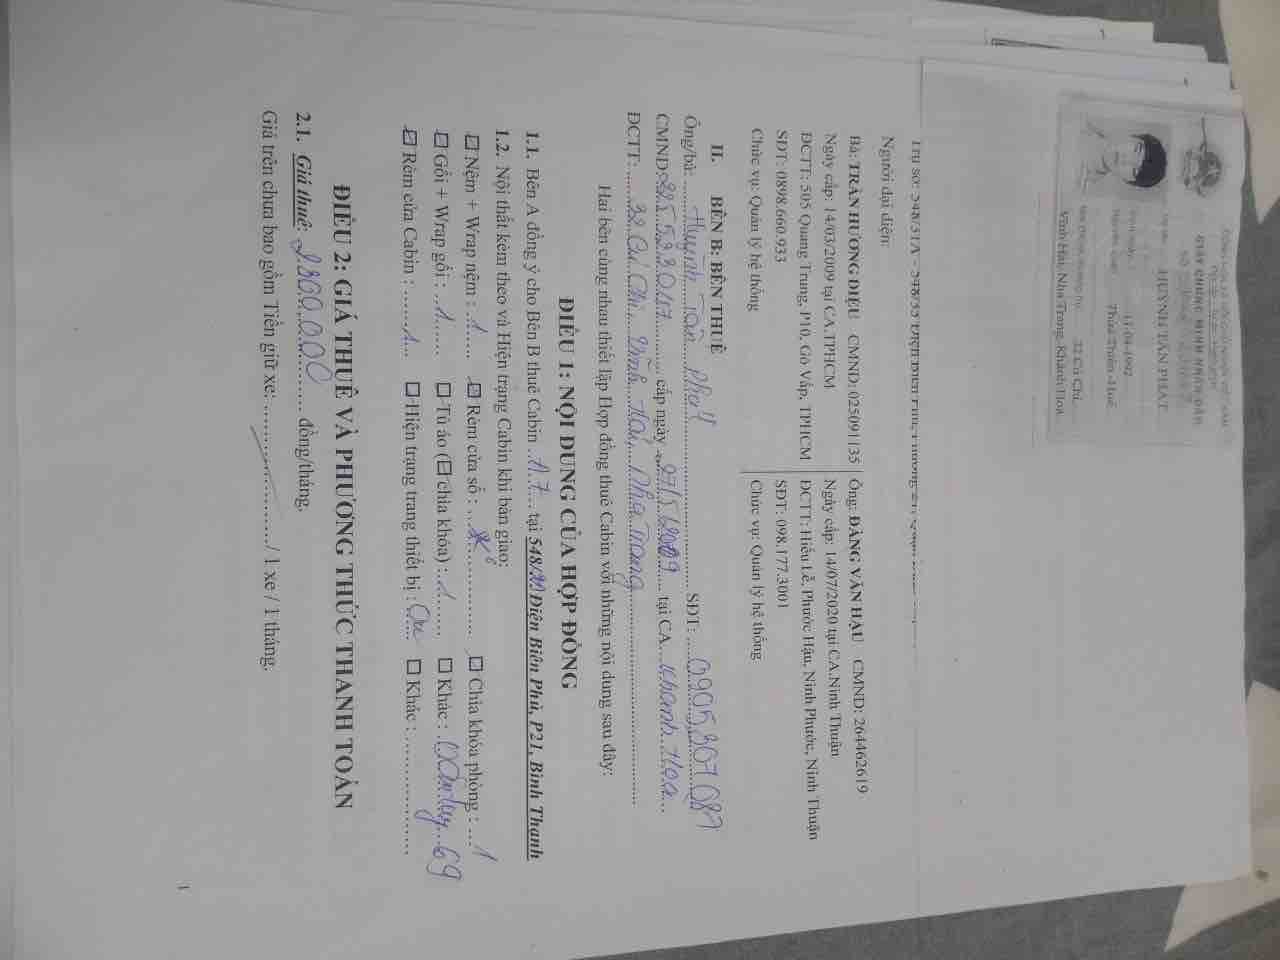 GIẤY CHỨNG MINH NHÂN DÂN
SỐ
HUỲNH TẤN PHÁT
17-04-1992
Thừa Thiên -Huế
32 Củ Chi
Vĩnh Hải, Nha Trang, Khánh Hòa
Trụ sở: 548/31A - 548/33 Điện Biên Phủ, Phường 21,
Người đại diện:
Bà: TRẦN HƯƠNG DIỆU CMND: 025091135
Ngày cấp: 14/03/2009 tại CA.TPHCM
ĐCTT: 505 Quang Trung, P10, Gò Vấp, TPHCM
SĐT: 0898.660.933
Chức vụ: Quản lý hệ thống
Ông: ĐÀNG VĂN HẬU CMND: 264462619
Ngày cấp: 14/07/2020 tại CA.Ninh Thuận
ĐCTT: Hiếu Lễ, Phước Hậu, Ninh Phước, Ninh Thuận
SĐT: 098.177.3001
Chức vụ: Quản lý hệ thống
II. BÊN B: BÊN THUÊ
Ông/bà: Huỳnh Tấn Phát SĐT: 0905307087
CMND: 225533047 cấp ngày 27/5/2009 tại CA Khánh Hòa
ĐCTT: 32 Củ Chi, Vĩnh Hải, Nha Trang
Hai bên cùng nhau thiết lập Hợp đồng thuê Cabin với những nội dung sau đây:
ĐIỀU 1: NỘI DUNG CỦA HỢP ĐỒNG
1.1. Bên A đồng ý cho Bên B thuê Cabin A7 tại 548/29 Điện Biên Phủ, P21, Bình Thạnh
1.2. Nội thất kèm theo và Hiện trạng Cabin khi bàn giao:
Nệm + Wrap nệm : 1 Rèm cửa sổ : Chìa khóa phòng : 1
Gối + Wrap gối : 1 Tủ áo ( chìa khóa) : 1 Khác : 69
Rèm cửa Cabin : 1 Hiện trạng trang thiết bị : Khác :
ĐIỀU 2: GIÁ THUÊ VÀ PHƯƠNG THỨC THANH TOÁN
2.1. Giá thuê: đồng/tháng.
Giá trên chưa bao gồm Tiền giữ xe: / 1 xe / 1 tháng.
1